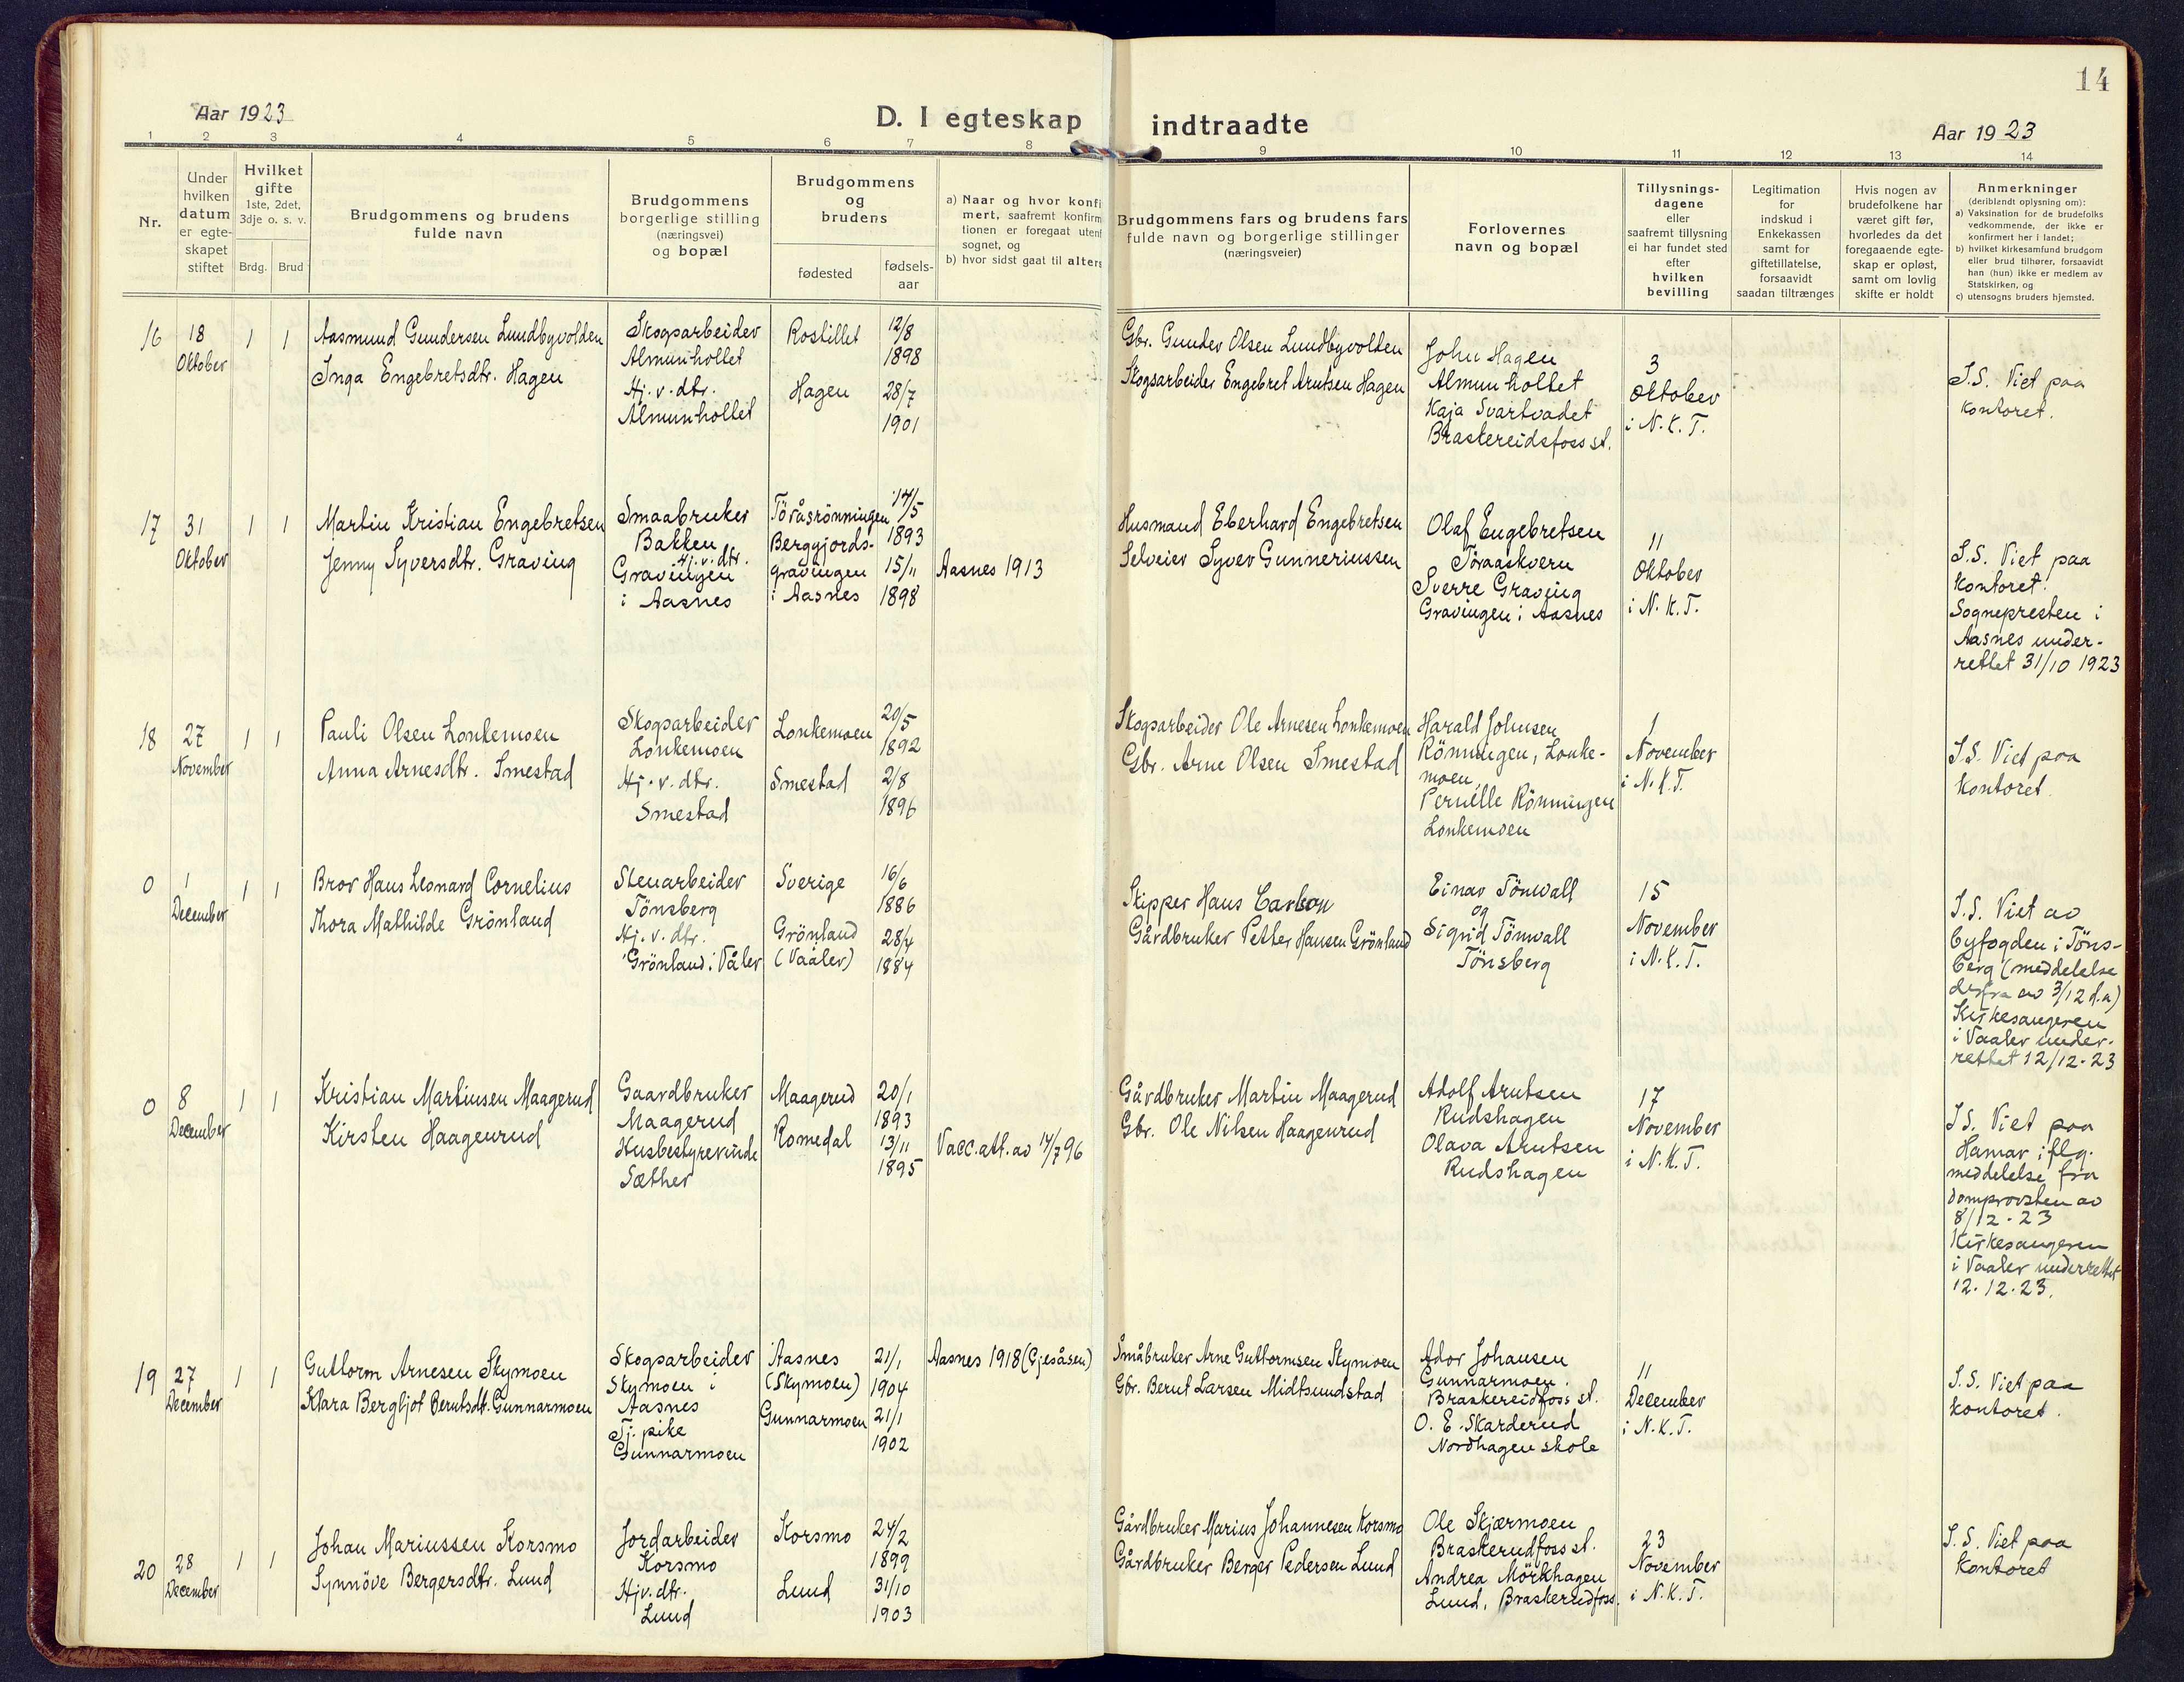 14
Aar 1923
D. I egteskap indtraadte
Aar 1923
1 2 3 4 5 6 7 8 9 10 11 12 13 14
Nr.
Under
hvilken
datum
er egte-
skapet
stiftet
Hvilket
gifte
1ste, 2det,
3dje o. s. v.
Brdg. Brud
Brudgommens og brudens
fulde navn
Brudgommens
borgerlige stilling
(næringsvei)
og bopæl
Brudgommens
og
brudens
fødested
fødsels-
aar
a) Naar og hvor konfi
mert, saafremt konfirm
tionen er foregaat utenf
sognet, og
b) hvor sidst gaat til alters
Brudgommens fars og brudens fars
fulde navn og borgerlige stillinger
(næringsveier)
Forlovernes
navn og bopæl
Tillysnings-
dagene
eller
saafremt tillysning
ei har fundet sted
efter
hvilken
bevilling
Legitimation
for
indskud i
Enkekassen
samt for
giftetillatelse,
forsaavidt
saadan tiltrænges
Hvis nogen av
brudefolkene har
været gift før,
hvorledes da det
foregaaende egte-
skap er opløst,
samt om lovlig
skifte er holdt
Anmerkninger
(deriblandt oplysning om):
a) Vaksination for de brudefolks
vedkommende, der ikke er
konfirmert her i landet;
b) hvilket kirkesamfund brudgom
eller brud tilhører, forsaavidt
han (hun) ikke er medlem av
Statskirken, og
c) utensogns bruders hjemsted.
16
18
Oktober
1 1
Aasmund Gundersen Lundbyvolden
Inga Engebretsdtr. Hagen
Skogsarbeider
Almunhollet
Hj. v. dtr.
Almunhollet
Rostillet
Hagen
12/8
1898
28/7
1901
Gbr. Gunder Olsen Lundbyvolden
Skogsarbeider Engebret Arntsen Hagen
John Hagen
Almunhollet
Kaja Svartvadet
Braskereidsfoss st.
3
Oktober
i N. K. T.
I.S. Viet paa
kontoret.
17
31
Oktober
1 1
Martin Kristian Engebretsen
Jenny Syversdtr. Graving
Smaabruker
Bakken
Hj. v. dtr.
Gravingen
i Aasnes
Töråsrönningen
Berggjords-
gravingen
i Aasnes
14/5
1893
15/11
1898
Aasnes 1913
Husmand Eberhard Engebretsen
Selveier Syver Gunneriussen
Olaf Engebretsen
Töraaskvern
Sverre Graving
Gravingen i Aasnes
11
Oktober
i N. K. T.
I.S. Viet paa
kontoret.
Sognepresten i
Aasnes under-
rettet 31/10 1923
18
27
November
1 1
Pauli Olsen Lonkemoen
Anna Arnesdtr. Smestad
Skogsarbeider
Lonkemoen
Hj. v. dtr.
Smestad
Lonkemoen
Smestad
20/5
1892
2/8
1896
Skogsarbeider Ole Arnesen Lonkemoen
Gbr. Arne Olsen Smestad
Harald Johnsen
Rönningen, Lonke-
moen
Pernille Rönningen
Lonkemoen
1
November
i N. K. T.
I.S. Viet paa
kontoret.
0
1
December
1 1
Bror Hans Leonard Cornelius
Thora Mathilde Grönland
Stenarbeider
Tönsberg
Hj. v. dtr.
Grönland i Våler
Sverige
Grönland
(Vaaler)
16/6
1886
28/4
1884
Skipper Hans Carlson
Gårdbruker Petter Hansen Grönland
Einar Tönwall
og
Sigrid Tönwall
Tönsberg
15
November
i N. K. T.
I.S. Viet av
byfogden i Töns-
berg (meddelelse
derfra av 3/12 d.a)
Kirkesangeren
i Vaaler under-
rettet 12/12-23
0
8
December
1 1
Kristian Martinsen Maagerud
Kirsten Haagenrud
Gaardbruker
Maagerud
Husbestyrerinde
Sæther
Maagerud
Romedal
20/1
1893
13/11
1895
Vacc. att. av 14/7 96
Gårdbruker Martin Maagerud
Gbr. Ole Nilsen Haagenrud
Adolf Arntsen
Rudshagen
Olava Arntsen
Rudshagen
17
November
i N. K. T.
I.S. Viet paa
Hamar iflg.
meddelelse fra
domprovsten av
8/12-23
Kirkesangeren
i Vaaler underrettet
12.12.23.
19
27
December
1 1
Guttorm Arnesen Skymoen
Klara Bergljot Berntsdtr. Gunnarmoen
Skogsarbeider
Skymoen i
Aasnes
Tj. pike
Gunnarmoen
Aasnes
(Skymoen)
Gunnarmoen
21/1
1904
21/1
1902
Aasnes 1918 (Gjesåsen)
Småbruker Arne Guttormsen Skymoen
Gbr. Bernt Larsen Midtsundstad
Ador Johansen
Gunnarmoen
Braskereidfoss st.
O. E. Skarderud
Nordhagen skole
11
December
i N. K. T.
I.S. Viet paa
kontoret.
20
28
December
1 1
Johan Mariussen Korsmo
Synnöve Bergersdtr. Lund
Jordarbeider
Korsmo
Hjv. dtr.
Lund
Korsmo
Lund
24/2
1899
31/10
1903
Gårdbruker Marius Johannesen Korsmo
Gårdbruker Berger Pedersen Lund
Ole Skjærmoen
Braskerudfoss st.
Andrea Mörkhagen
Lund, Braskerudfoss.
23
November
i N. K. T.
I.S. Viet paa
kontoret